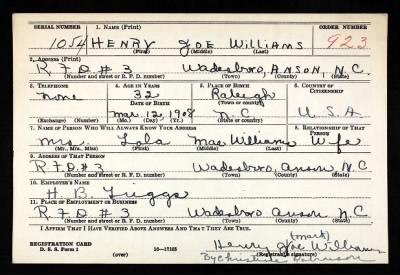 SERIAL NUMBER 1. NAME (Print) ORDER NUMBER
1054 HENRY JOE WILLIAMS 923
(First) (Middle) (Last)
2. ADDRESS (Print)
R F D # 3 Wadesboro, ANSON, N.C.
(Number and street or R. F. D. number) (Town) (County) (State)
3. TELEPHONE 4. AGE IN YEARS 5. PLACE OF BIRTH 6. COUNTRY OF CITIZENSHIP
None 32 Raleigh
DATE OF BIRTH (Town or county)
Mar. 12, 1908 N C U. S. A.
(Exchange) (Number) (Mo.) (Day) (Yr.) (State or country)
7. NAME OF PERSON WHO WILL ALWAYS KNOW YOUR ADDRESS 8. RELATIONSHIP OF THAT PERSON
Mrs Lola Mae Williams Wife
(Mr., Mrs., Miss) (First) (Middle) (Last)
9. ADDRESS OF THAT PERSON
R F D # 3 Wadesboro Anson N.C
(Number and street or R. F. D. number) (Town) (County) (State)
10. EMPLOYER'S NAME
H. B. Triggs
11. PLACE OF EMPLOYMENT OR BUSINESS
R F D # 3 Wadesboro Anson N.C
(Number and street or R. F. D. number) (Town) (County) (State)
I AFFIRM THAT I HAVE VERIFIED ABOVE ANSWERS AND THAT THEY ARE TRUE.
(mark)
REGISTRATION CARD Henry Joe Williams
D. S. S. Form 1 16—17105 (Registrant's signature)
(over) By Christine